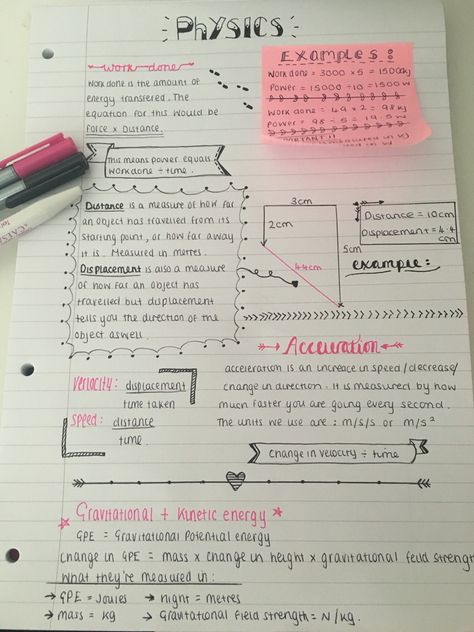 PHYSICS
work done
Work done is the amount of
energy transfered. The
equation for this would be
Force x Distance.
This means power equals
Work done ÷ time.
Examples:
Work done = 3000 x 5 = 1500kg
Power = 15000 ÷ 10 = 1500W
Work done = 49 x 2 = 98kg
Power = 98 ÷ 5 = 19.5W
Distance is a measure of how far
an object has travelled from its
starting point, or how far away
it is. Measured in metres.
Displacement is also a measure
of how far an object has
travelled but displacement
tells you the direction of the
object aswell.
3cm
2cm
4.4cm
5cm
Distance = 10cm
Displacement = 4.4
cm
example:
Velocity: displacement
time taken
Speed: distance
time.
Acceleration
acceleration is an increase in speed/decrease/
change in direction. it is measured by how
much faster you are going every second.
The units we use are: m/s/s or m/s²
Change in velocity ÷ time
Gravitational + Kinetic energy
GPE = Gravitational Potential energy
change in GPE = mass x change in height x gravitational feild strength
What they're measured in:
→ GPE = Joules → hight = metres
→ mass = kg → Gravitational field strength = N/kg.